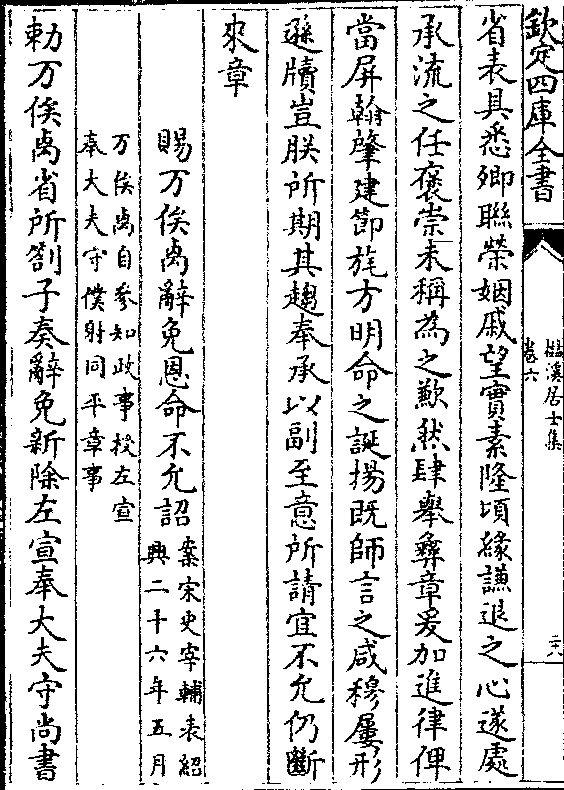 欽定四庫全書
檆溪居士集
卷六
二六
省表具悉卿聯榮姻戚望實素隆頃緣謙退之心遂處
承流之任褒崇未稱為之歉然肆舉彝章爰加進律俾
當屏翰肇建節旄方明命之誕揚既師言之咸穆屢形
遜牘豈朕所期其趨奉承以副至意所請宜不允仍斷
來章
賜万俟卨辭免恩命不允詔案宋史宰輔表紹
興二十六年五月
万俟卨自參知政事授左宣
奉大夫守僕射同平章事
勅万俟卨省所劄子奏辭免新除左宣奉大夫守尚書